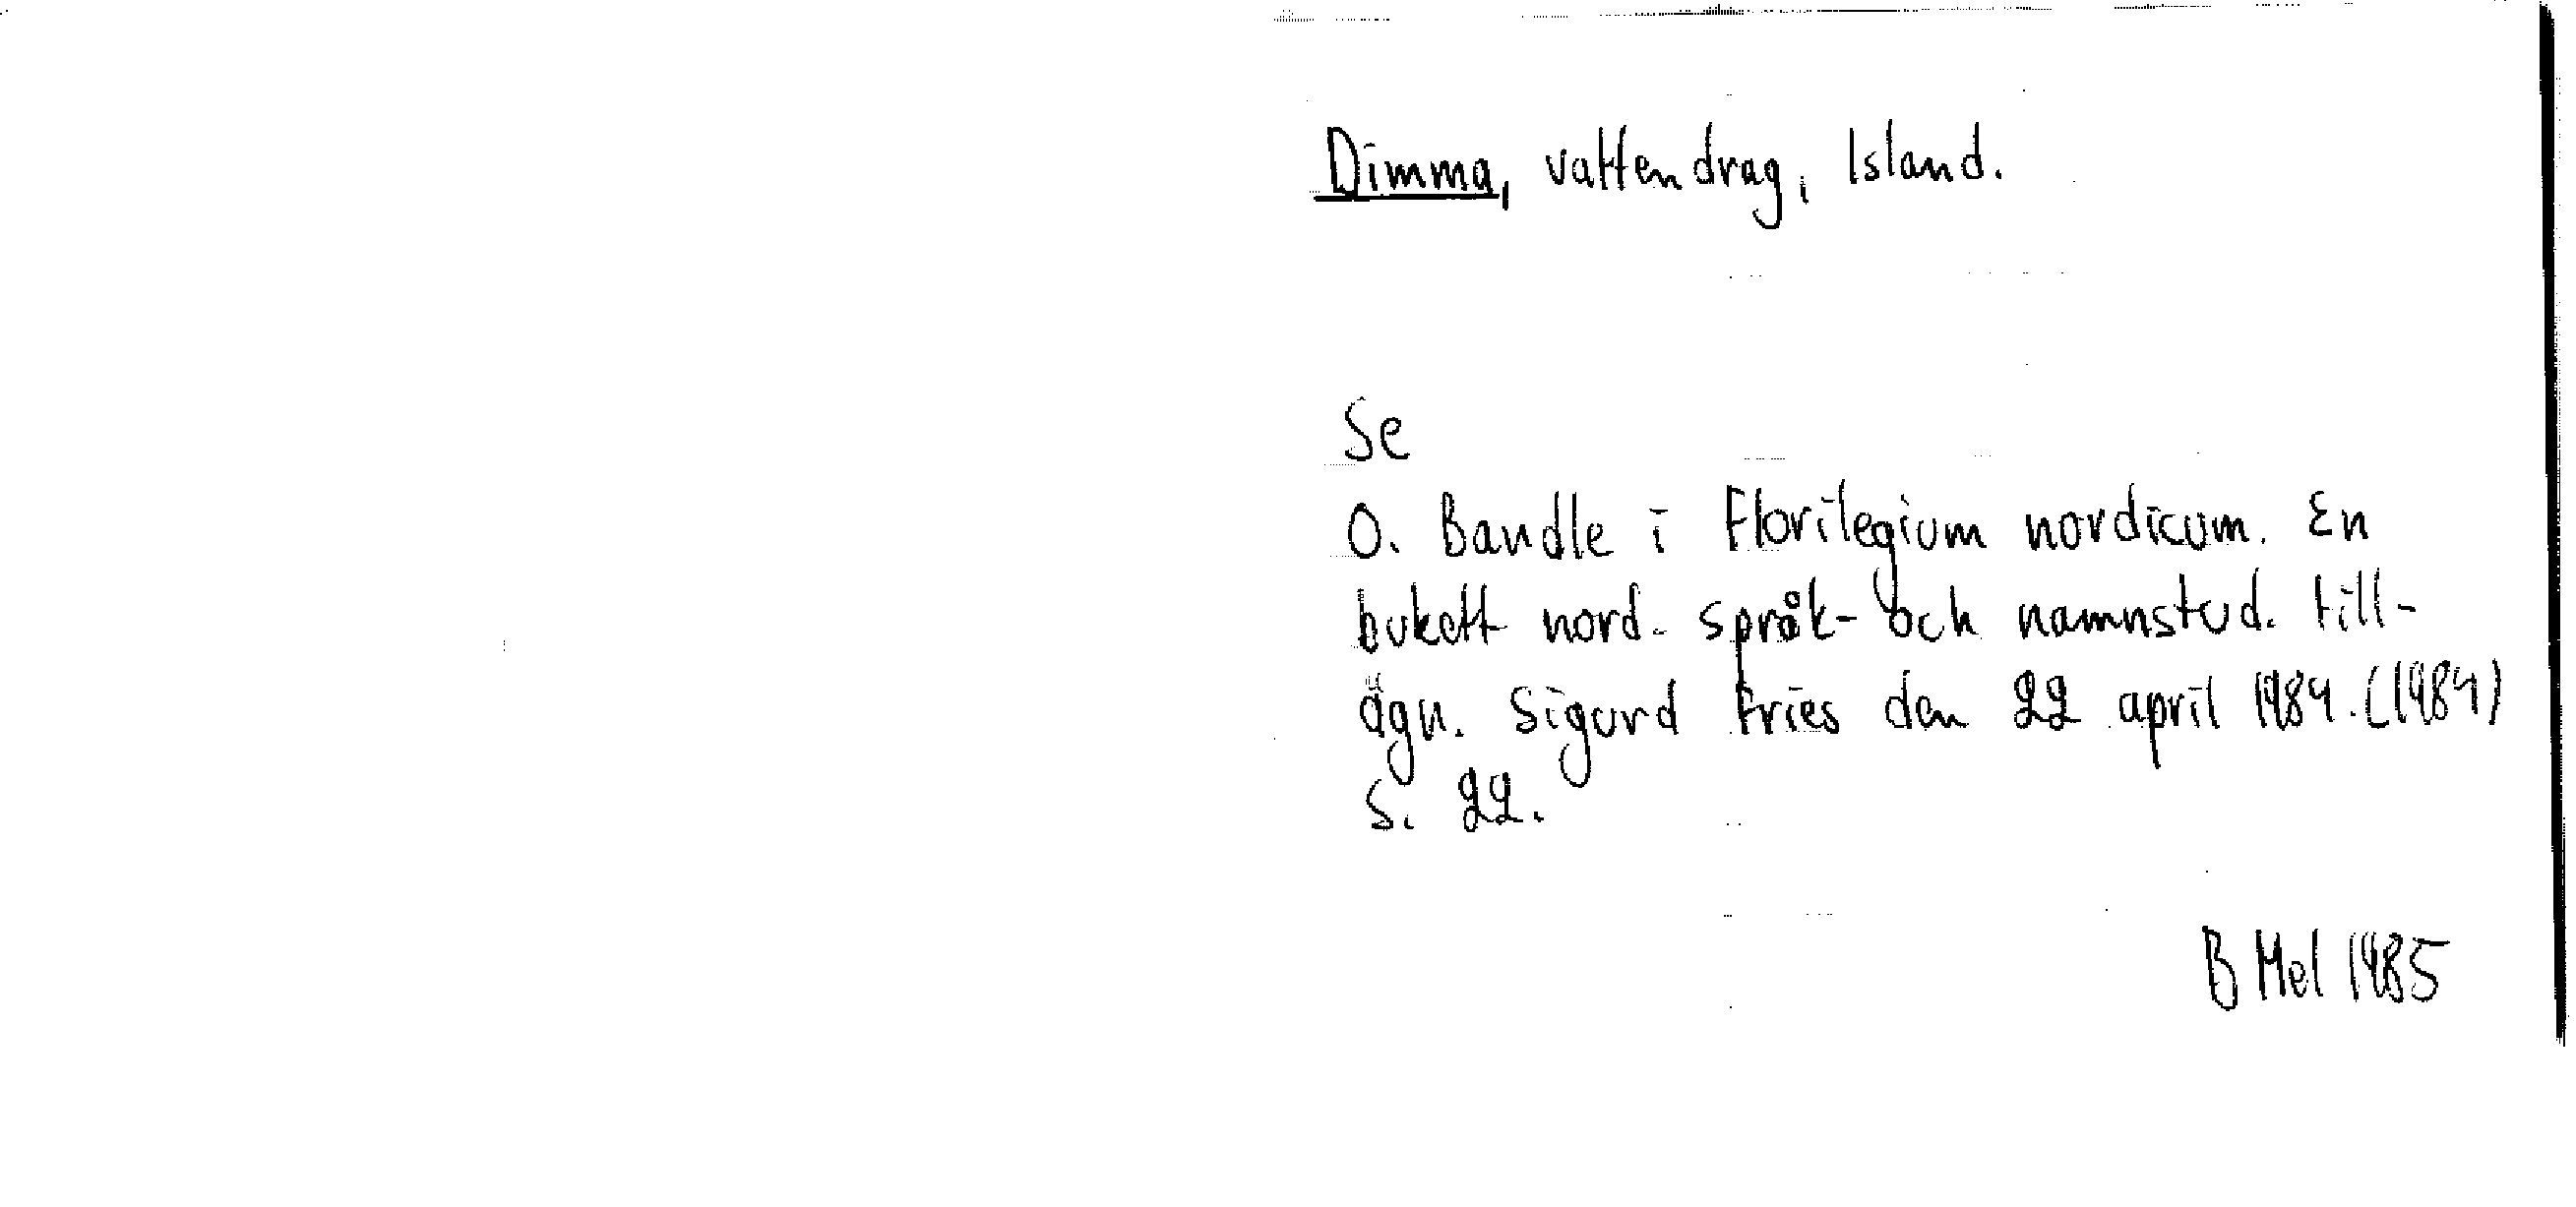 Dimma, vattendrag, Island.
Se
O. Bandle i Florilegium nordicum. En
bukett nord. språk- och namnstud. till-
ägn. Sigurd Fries den 22 april 1984. (1984)
s. 22.
B Mel 1985